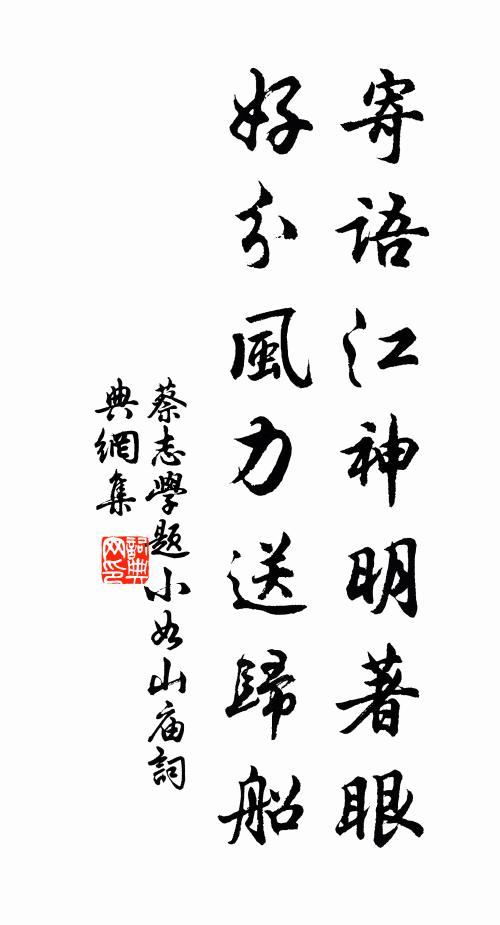 寄語江神明著眼
好分風力送歸船
蔡志學題小女山庙詞
典網集
詞典
网印